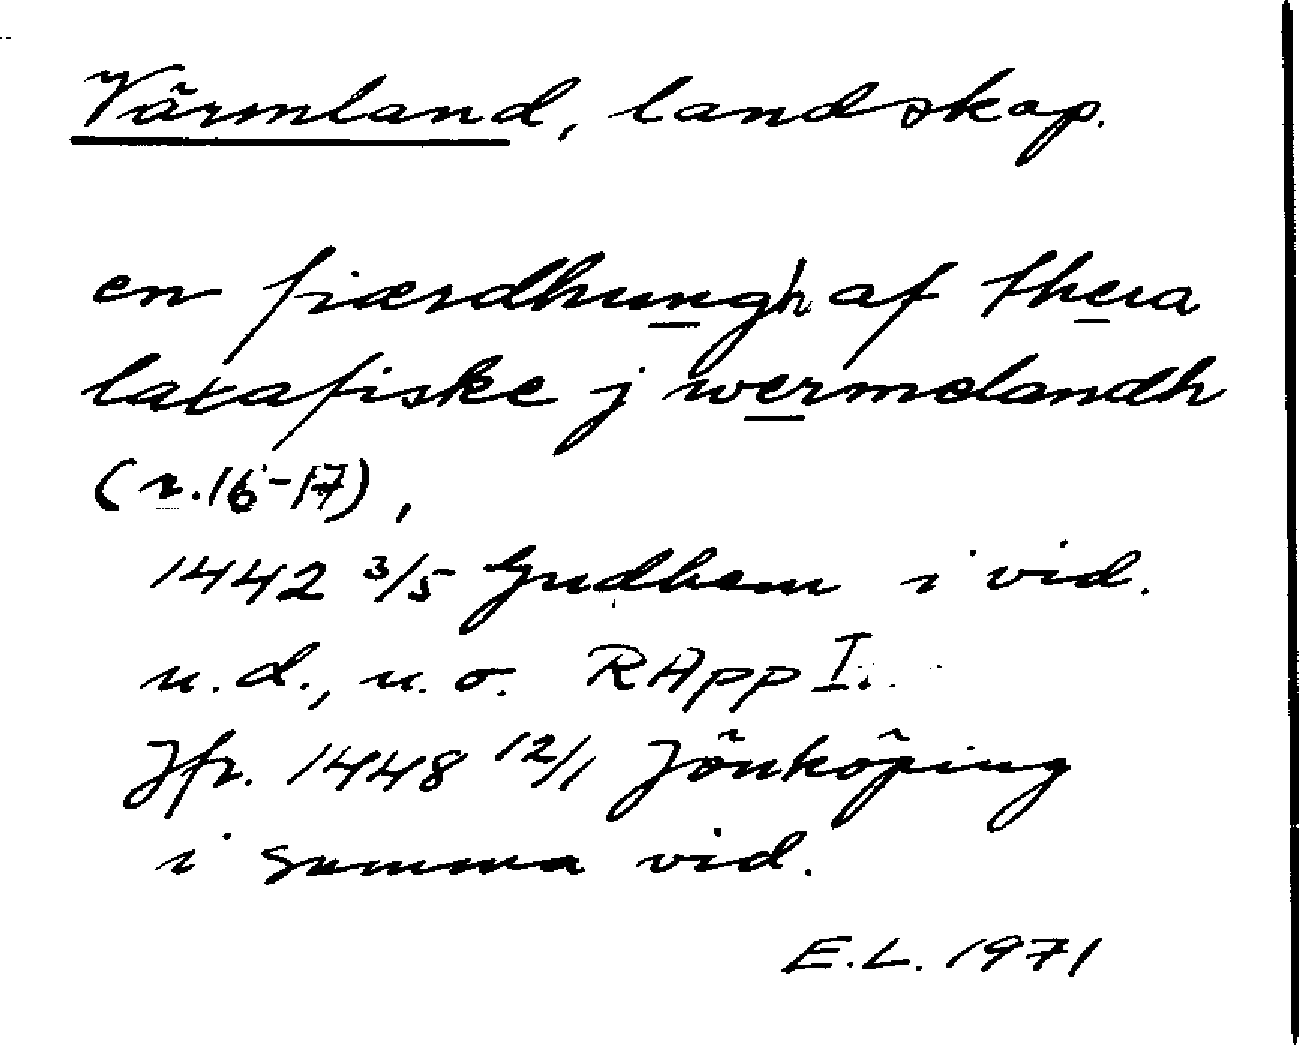 Värmland, landskap.
en fiærdhungh af thera
laxafiske j wermelandh
(r.16-17),
1442 3/5 Gudhem i vid.
u.d., u.o. RApp I.
Jfr. 1448 12/1 Jönköping
i samma vid.
E.L. 1971